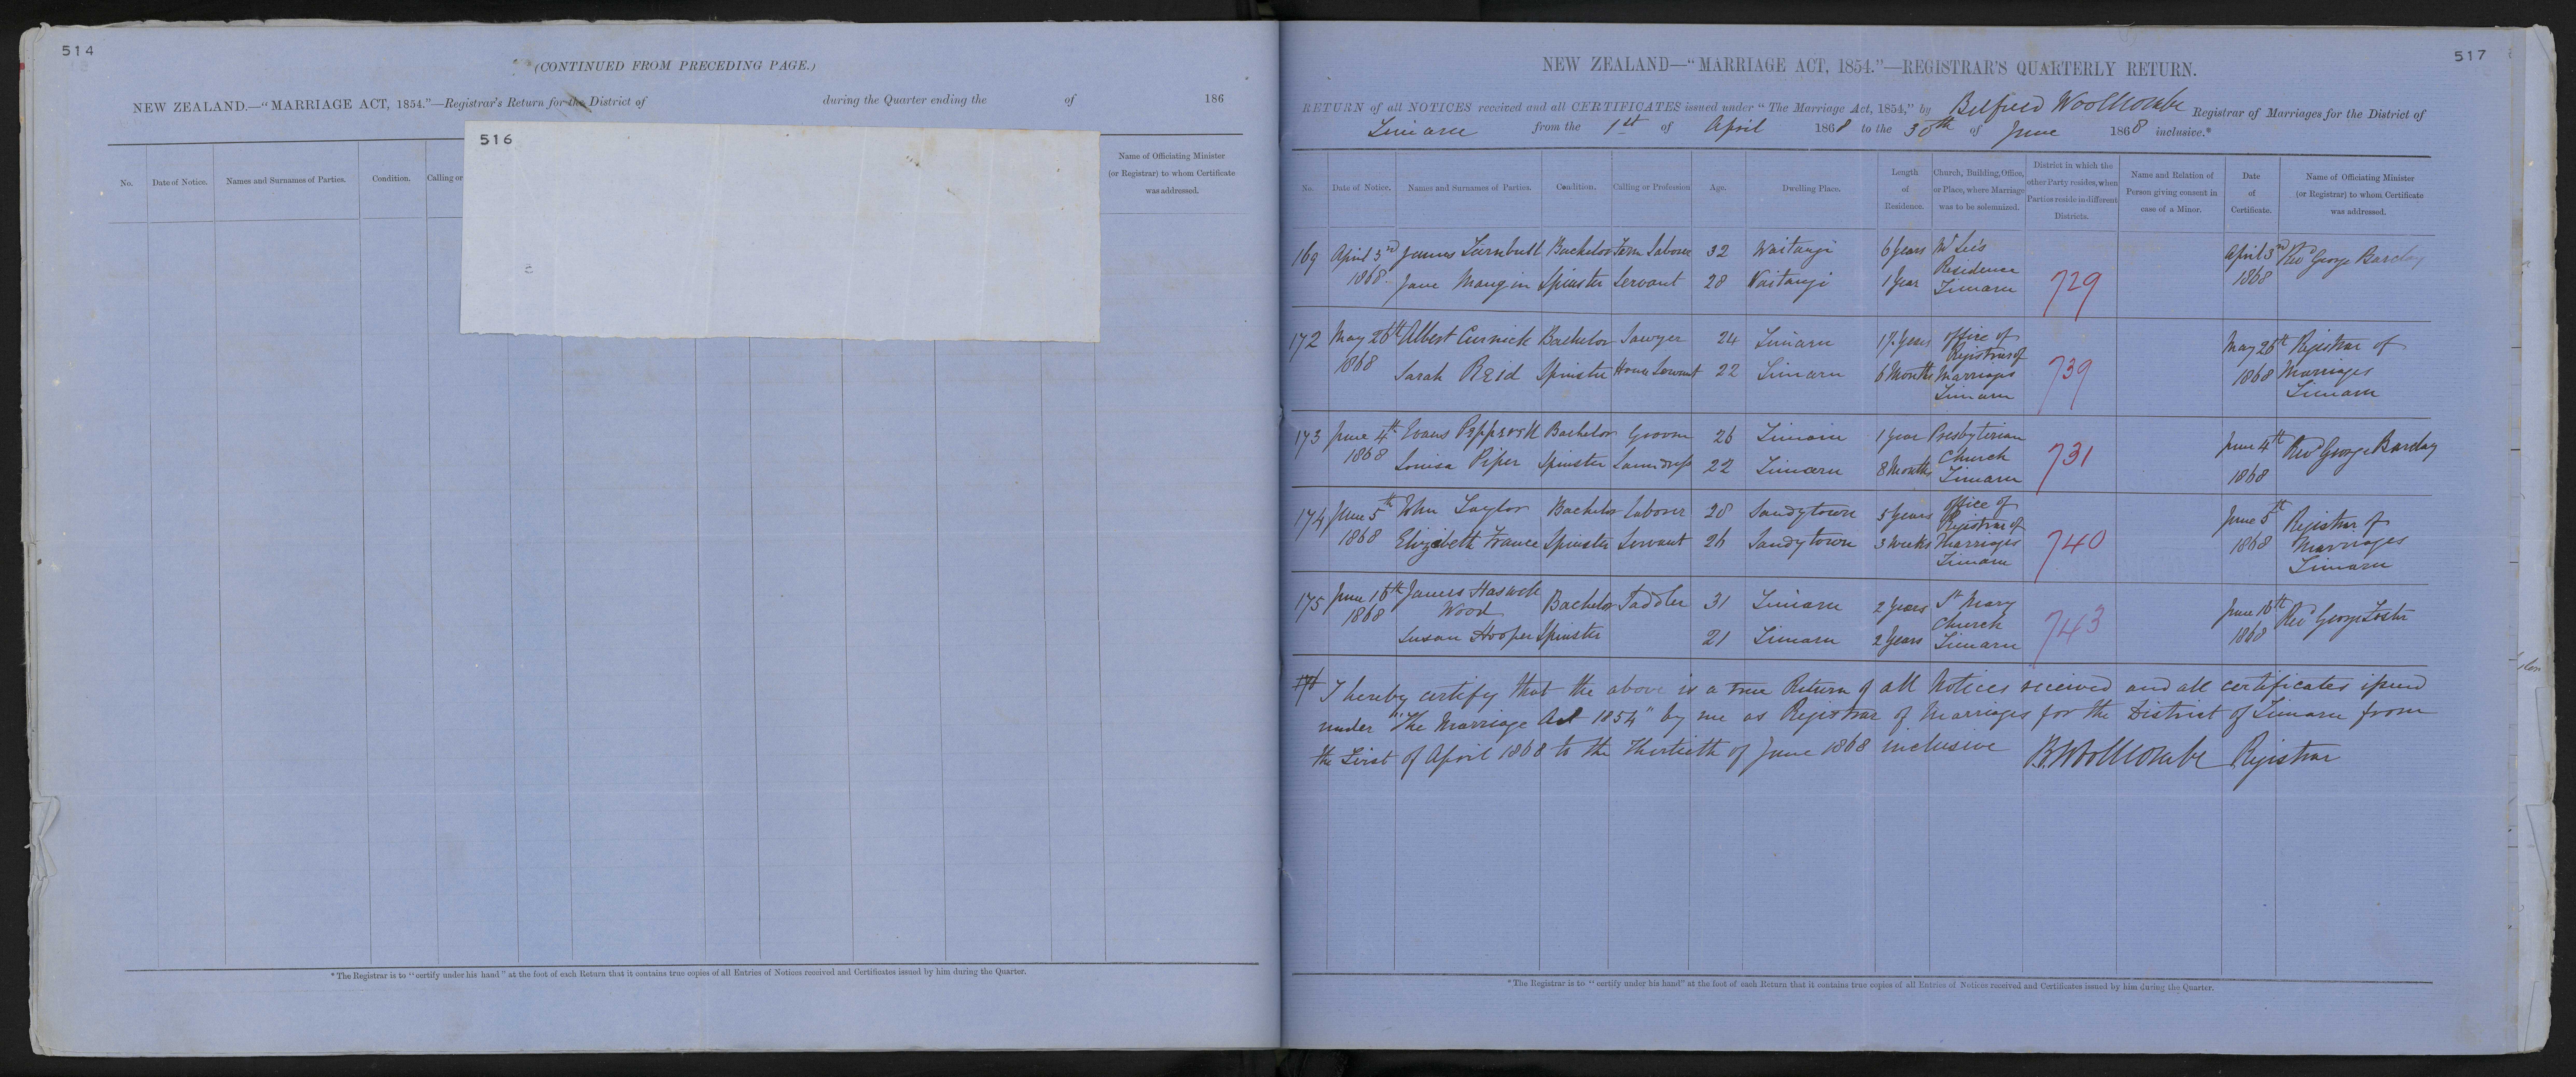 514
(CONTINUED FROM PRECEDING PAGE.)
NEW ZEALAND.—"MARRIAGE ACT, 1854."—Registrar's Return for the District of during the Quarter ending the of 186
516
No. Date of Notice. Names and Surnames of Parties. Condition. Calling or
Name of Officiating Minister
(or Registrar) to whom Certificate
was addressed.
* The Registrar is to "certify under his hand" at the foot of each Return that it contains true copies of all Entries of Notices received and Certificates issued by him during the Quarter.
517
NEW ZEALAND—"MARRIAGE ACT, 1854."—REGISTRAR'S QUARTERLY RETURN.
RETURN of all NOTICES received and all CERTIFICATES issued under "The Marriage Act, 1854," by Belfield Woollcombe Registrar of Marriages for the District of
Timaru from the 1st of April 1868 to the 30th of June 1868 inclusive.*
No. Date of Notice. Names and Surnames of Parties. Condition. Calling or Profession Age. Dwelling Place. Length of Residence. Church, Building, Office, or Place, where Marriage was to be solemnized. District in which the other Party resides, when Parties reside in different Districts. Name and Relation of Person giving consent in case of a Minor. Date of Certificate. Name of Officiating Minister (or Registrar) to whom Certificate was addressed.
169 April 3rd James Turnbull Bachelor Farm Laborer 32 Waitangi 6 Years Mr Lee's April 3rd Revd George Barclay
1868 Jane Mangin Spinster Servant 28 Waitangi 1 Year Residence Timaru 729 1868
172 May 26th Albert Curnick Bachelor Sawyer 24 Timaru 1½ Years office of Registrar of May 26th Registrar of
1868 Sarah Reid Spinster House Servant 22 Timaru 6 Months Marriages Timaru 739 1868 Marriages Timaru
173 June 4th Evans Bachelor Groom 26 Timaru 1 year Presbyterian June 4th Revd George Barclay
1868 Louisa Piper Spinster Laundress 22 Timaru 8 Months Church Timaru 731 1868
174 June 5th John Taylor Bachelor Laborer 28 Sandytown 5 Years office of Registrar of June 5th Registrar of
1868 Elizabeth France Spinster Servant 26 Sandytown 3 weeks Marriages Timaru 740 1868 Marriages Timaru
175 June 16th James Haswell Wood Bachelor Saddler 31 Timaru 2 Years St Mary June 16th Revd George Foster
1868 Susan Hooper Spinster 21 Timaru 2 Years Church Timaru 743 1868
176 I hereby certify that the above is a true Return of all Notices received and all certificates issued
under "The Marriage Act 1854" by me as Registrar of Marriages for the District of Timaru from
the First of April 1868 to the Thirtieth of June 1868 inclusive B. Woollcombe Registrar
* The Registrar is to "certify under his hand" at the foot of each Return that it contains true copies of all Entries of Notices received and Certificates issued by him during the Quarter.